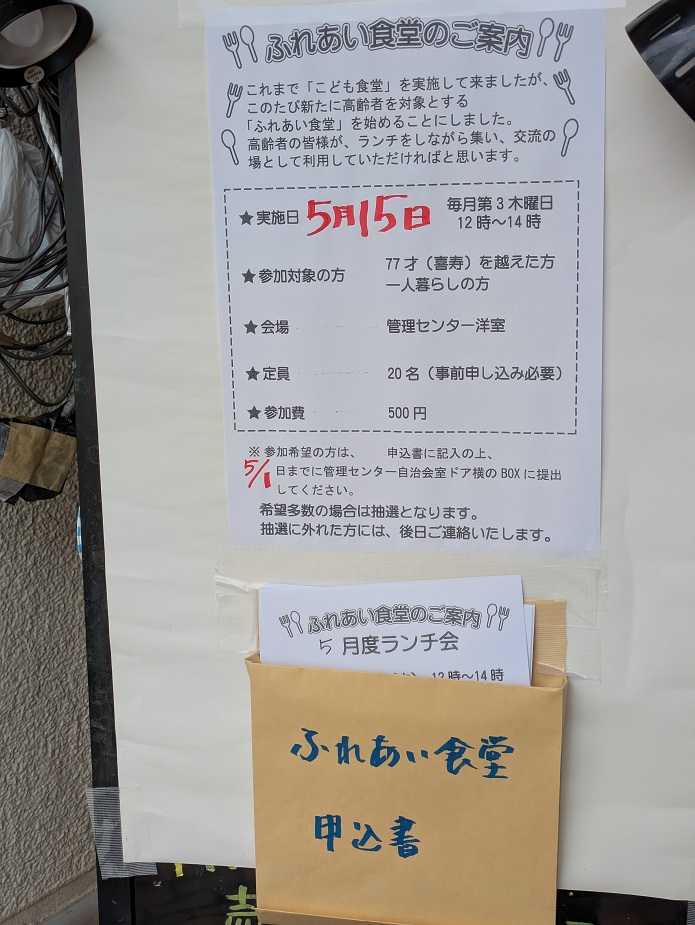 ふれあい食堂のご案内
これまで「こども食堂」を実施して来ましたが、
このたび新たに高齢者を対象とする
「ふれあい食堂」を始めることにしました。
高齢者の皆様が、ランチをしながら集い、交流の
場として利用していただければと思います。
★実施日 5月15日 毎月第3木曜日
12時～14時
★参加対象の方 77才（喜寿）を越えた方
一人暮らしの方
★会場 管理センター洋室
★定員 20名（事前申し込み必要）
★参加費 500円
※ 参加希望の方は、 申込書に記入の上、
5/1 日までに管理センター自治会室ドア横のBOXに提出
してください。
希望多数の場合は抽選となります。
抽選に外れた方には、後日ご連絡いたします。
ふれあい食堂のご案内
5 月度ランチ会
12時～14時
ふれあい食堂
申込書